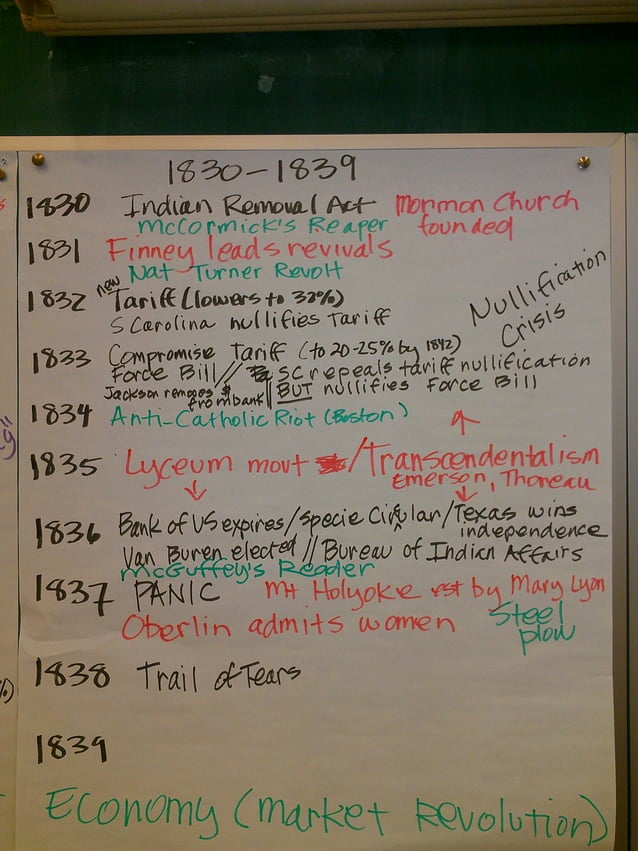 1830-1839
1830 Indian Removal Act Mormon Church
McCormick's Reaper founded
1831 Finney leads revivals
Nat Turner Revolt
1832 new Tariff (lowers to 32%)
S Carolina nullifies Tariff
Nullification
Crisis
1833 Compromise Tariff (to 20-25% by 1842)
Force Bill // SC repeals tariff nullification
Jackson removes $ BUT nullifies Force Bill
from bank
1834 Anti-Catholic Riot (Boston)
1835 Lyceum movt /Transcendentalism
Emerson, Thoreau
1836 Bank of US expires/specie Circular/Texas wins
independence
Van Buren elected // Bureau of Indian Affairs
McGuffey's Reader
1837 PANIC Mt Holyoke est by Mary Lyon
Oberlin admits women Steel
plow
1838 Trail of Tears
1839
Economy (market Revolution)